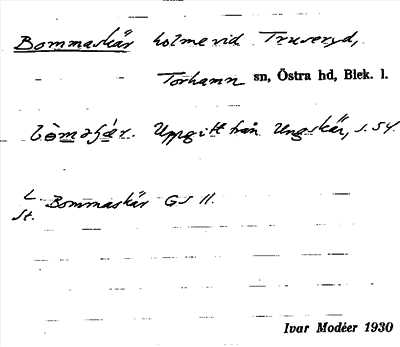 Bommaskär holme vid Truseryd,
Torhamn sn, Östra hd, Blek. l.
Uppgift från Ungskär, s. 54.
L. St. Bommaskär GS II.
Ivar Modéer 1930